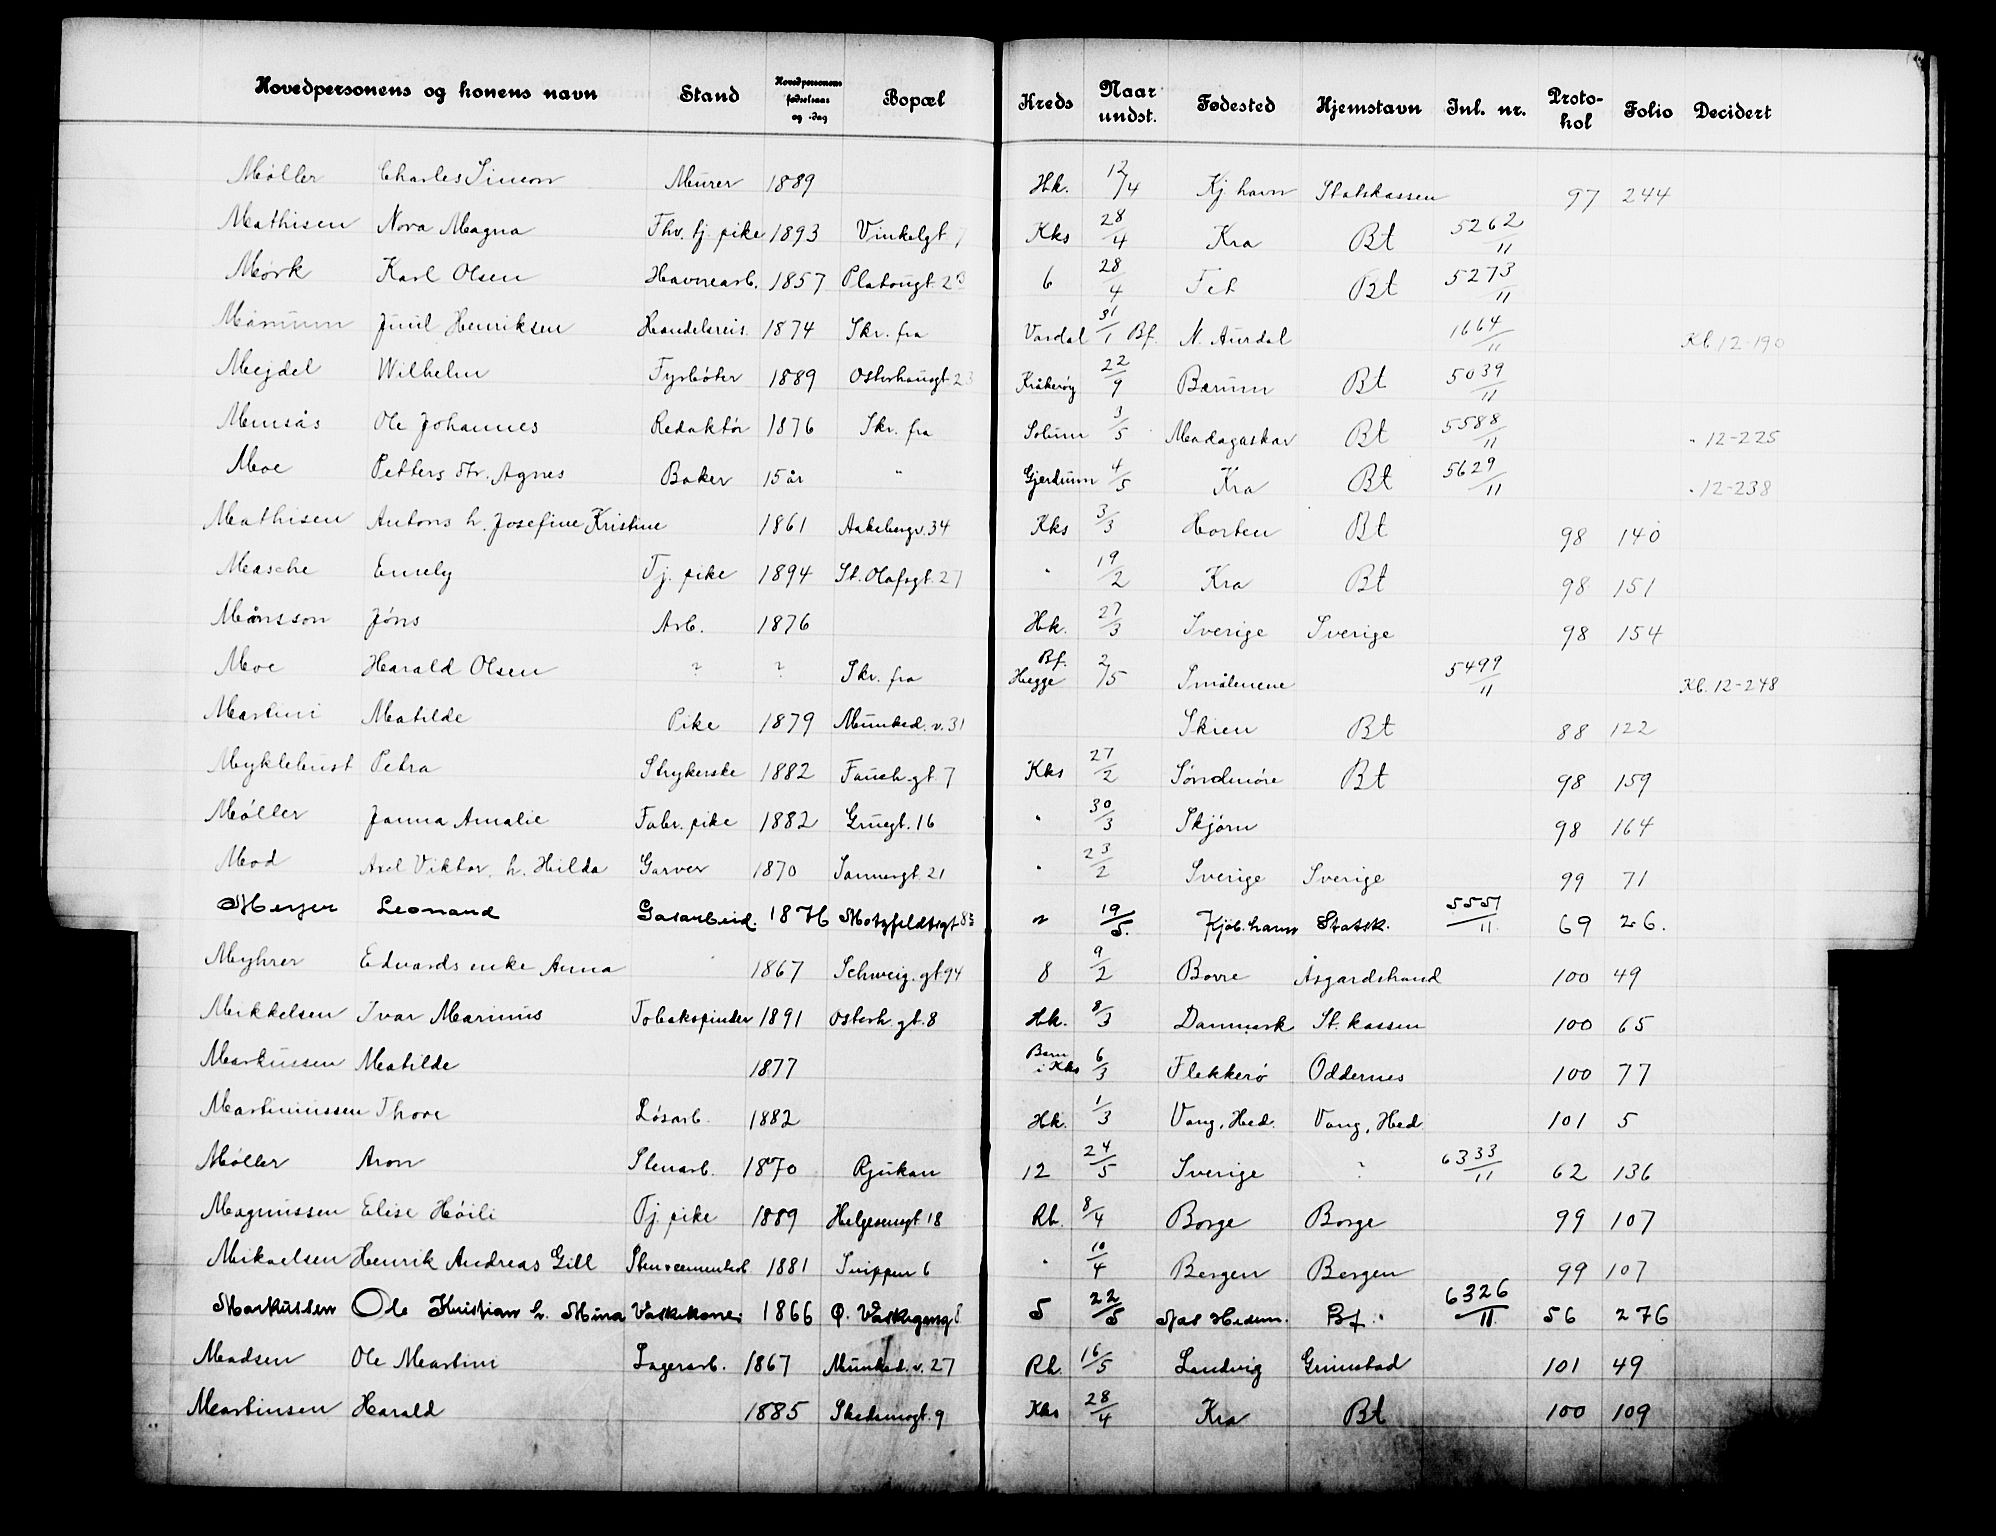 Hovedpersonens og konens navn Stand Hovedpersonens fødselsaar og -dag Bopæl Kreds Naar undst. Fødested Hjemstavn Inl. nr. Protokol Folio Decidert
Møller Charles Simon Murer 1889 Hk. 12/4 Kj.havn Statskassen 97 244
Mathisen Nora Magna Fhv. tj. pike 1893 Vinkelgt 7 Kks 28/4 Kra Bt 5262/11
Mørk Karl Olsen Havnearb. 1857 Platougt 6 28/4 Fet Bt 5273/11
Juul Henriksen Handelsreis. 1874 Skr. fra Vardal 31/1 Bf. N. Aurdal 1664/11 Kl. 12-190
Mejdel Wilhelm Fyrbøter 1889 Osterhausgt 23 Kråkerøy 22/9 Bærum Bt 5039/11
Ole Johannes Redaktør 1876 Skr. fra Solum 3/5 Madagaskar Bt 5588/11 " 12-225
Moe Petters dtr. Agnes Baker 15 år " Gjerdrum 4/5 Kra Bt 5629/11 " 12-238
Mathisen Antons h. Josefine Kristine 1861 Aakebergv. 34 Kks 3/3 Horten Bt 98 140
Masche Emely Tj. pike 1894 St. Olafsgt. 27 " 19/2 Kra Bt 98 151
Månsson Jöns Arb. 1876 Hk. 27/3 Sverige Sverige 98 154
Moe Harald Olsen ? ? Skr. fra Bf. Hegge 2/5 Smålenene 5499/11 Kl. 12-248
Martini Matilde Pike 1879 Munked. v. 31 Skien Bt 88 122
Myklebust Petra Strykerske 1882 Fauch. gt. 7 Kks 27/2 Søndmøre Bt 98 159
Møller Janna Amalie Fabr. pike 1882 Gruegt. 16 " 30/3 Skjørn 98 164
Mod Axel Viktor, h. Hilda Garver 1870 Sannergt. 21 " 23/2 Sverige Sverige 99 71
Meyer Leonard Gasarbeid. Motzfeldtsgt " 19/5. Kjøb.havn Statsk. 5551/11 69 26.
Myhrer Edvards enke Anna 1867 Schweig. gt 94 8 9/2 Borre Åsgardstrand 100 49
Mikkelsen Ivar Marinus Tobakspinder 1891 Osterh. gt. 8 Hk. 8/3 Danmark St. kassen 100 65
Markussen Matilde 1877 Barn i Kks 6/3 Flekkerø Oddernes 100 77
Martinussen Thore Løsarb. 1882 Hk. 1/3 Vang, Hed. Vang, Hed. 101 5
Møller Aron Stenarb. 1870 Rjukan 12 24/5 Sverige ? 6333/11 62 136
Magnussen Elise Höili Tj. pike 1889 Helgesensgt 18 Rh. 8/4 Borge Borge 99 107
Mikaelsen Henrik Andreas Gill 1881 Snippen 6 " 10/4 Bergen Bergen 99 107
Markussen Ole Kristian h. Mina Vaskekone 1866 Ø. Vaskegang 5 22/5 Hedem. Bf. 6326/11 56 276
Madsen Ole Martini Lagerarb. 1867 Munked. v. 27 Rh. 16/5 Landvig Grimstad 101 49
Martinsen Harald 1885 Skedsmogt. 9 Kks 28/4 Kra Bt 100 109